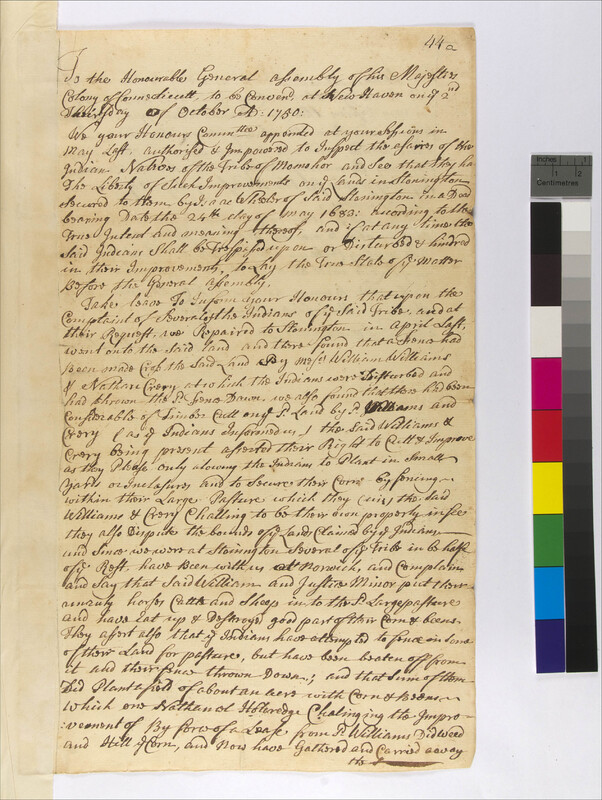 44a
To the Honourable General Assembly of his Majesties
Colony of Connecticutt, to be Conven'd at New Haven on ye 2nd
Thursday of October AD: 1750:
We your Honours Committee appointed at your Sessions in
May Last, authorised & Impowered to Inspect the afaires of the
Indian Natives of the Tribe of Momohor and See that they ha
The Liberty of Such Improvements on ye Lands in Stonington
Secured to them by Isaac Wheeler of Said Stonington in a Deed
bearing Date the 24th day of May 1683: according to the
True Intent and meaning thereof, and if at any time the
Said Indians Shall be Trespassed upon or Disturbed & hindred
in their Improvements, to Lay the True State of ye Matter
Before the General Assembly.
Take leave To Inform your Honours that upon the
Complaint of Several of the Indians of ye Said Tribe, and at
their Request, we Repaired to Stonington in April Last,
went onto the Said Land and there found that a fence had
Been made Cross the Said Land By Messrs William Williams
& Nathan Crery at which the Indians were Disturbed and
had thrown the sd fence Down, we also found that there had been
Considerable of Timber Cutt on ye sd Land by sd Williams and
Crery (as ye Indians Informed us) the Said Williams &
Crery being present asserted their Right to Cutt & Improve
as they Please only alowing the Indians to Plant in Small
Yards or Inclosures and to Secure their Corn by fencing
within their Large Pasture which they (viz) the Said
Williams & Crery Challing to be their own property in fee
they also Dispute the bounds of ye Land Claimed by ye Indians
and Since we were at Stonington Several of ye Tribe in behalf
of ye Rest, have Been with us at Norwich, and Complain
and Say that Said William and Justice Minor put their
horses Cattle and Sheep in to the sd Large pasture
and have Eat up & Destroyed good part of their Corn & beens.
They asert also that ye Indians have attempted to fence in some
of their Land for pasture, but have been beaten off from
it and their fence thrown Down; and that Sum of them
Did Plant a field of about an acre with Corn & Beens
which one Nathanael Holdredge Chalinging the Impro-
:vement of By force of a Lease from sd Williams Did weed
and Hill ye Corn, and Now have Gathered and Carried away
the